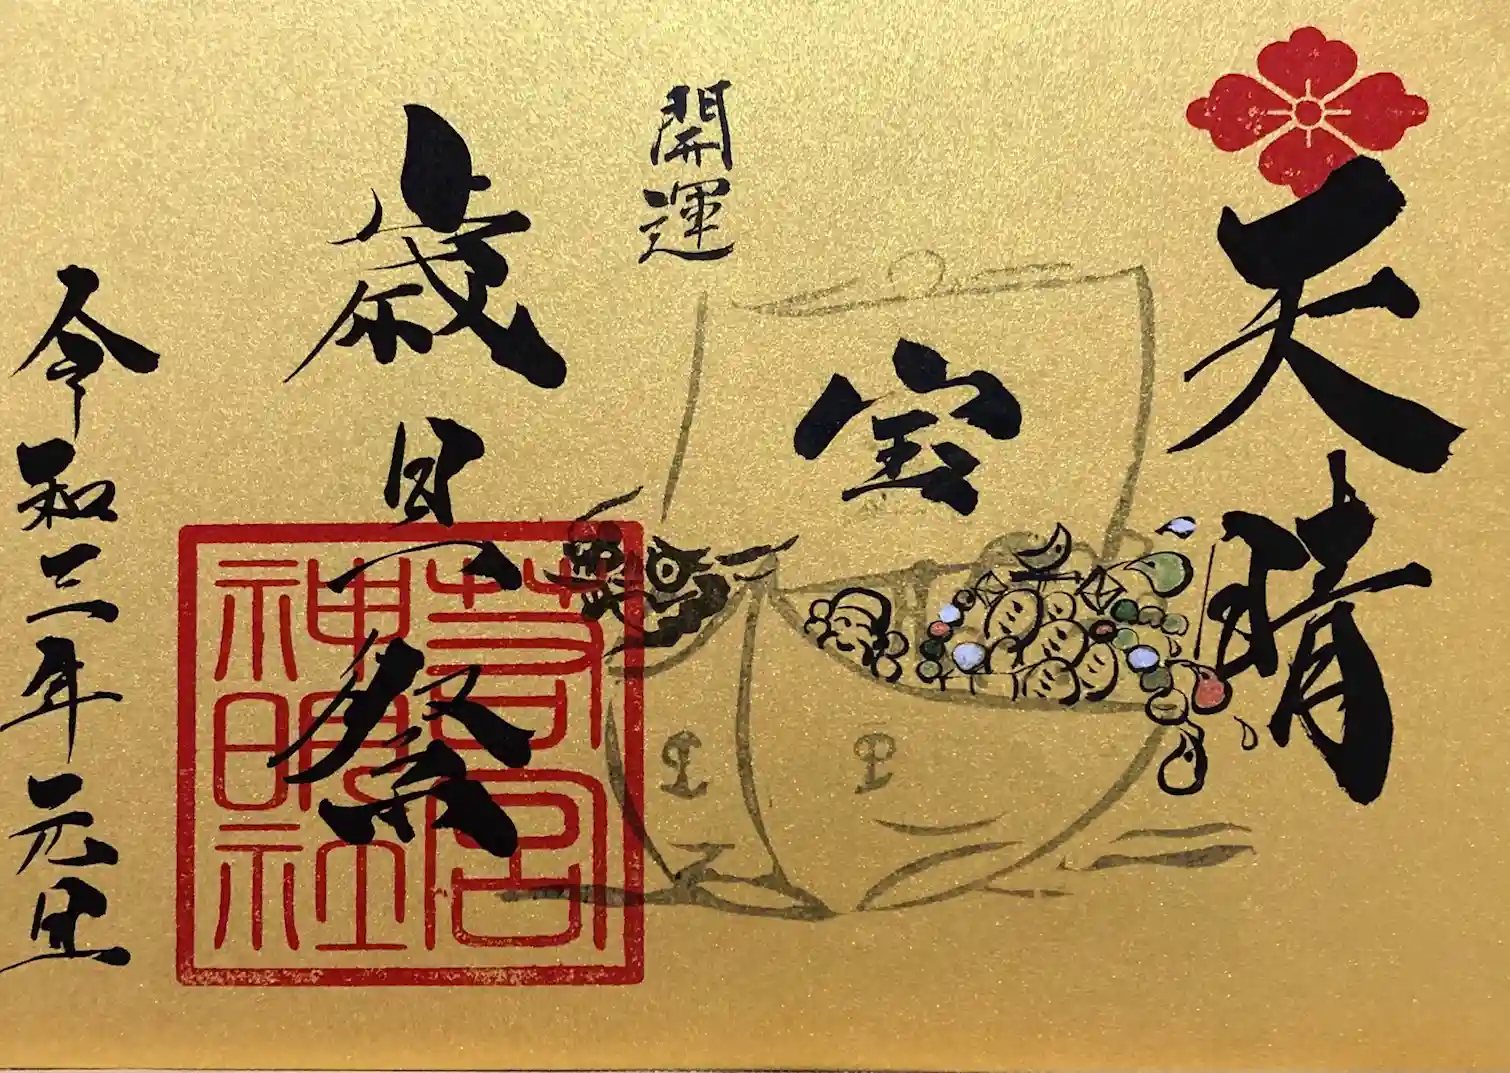 天晴
宝
開運
歳旦祭
芳宮
神明社
令和三年元旦